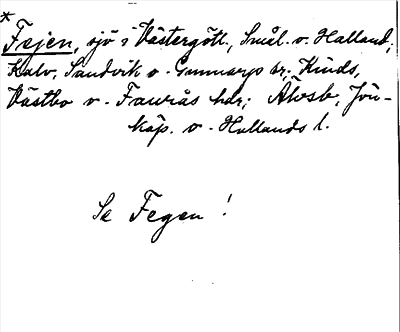 *
Fejen, sjö i Västergötl., Smål. o. Halland;
Kalv, Sandvik o. Gunnarps sr; Kinds,
Västbo o. Faurås hdr; Älvsb., Jön-
köp. o. Hallands l.
Se Fegen!